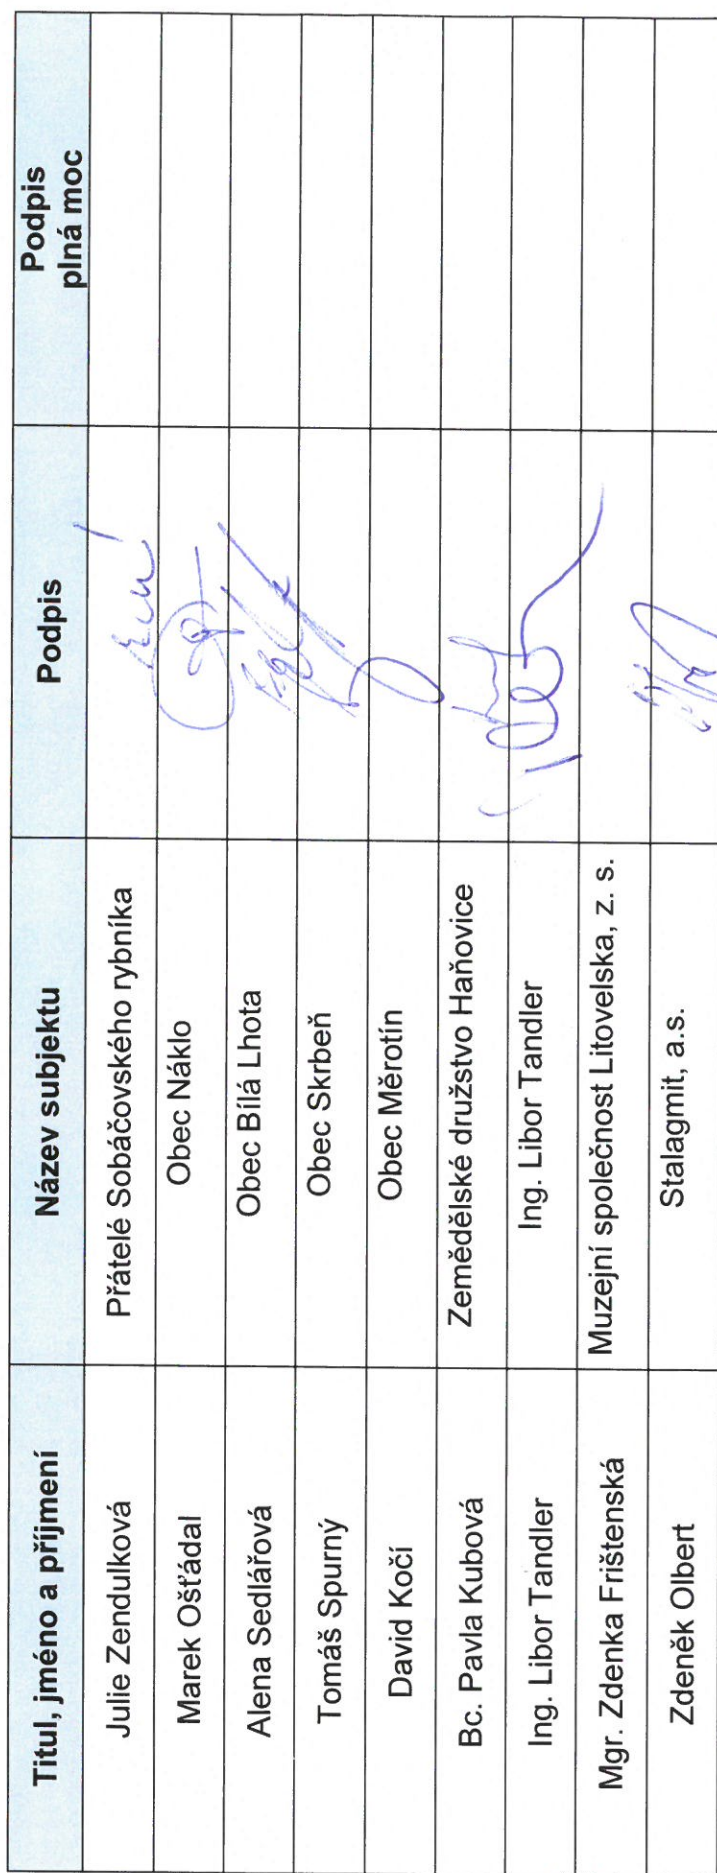 Titul, jméno a příjmení Název subjektu Podpis Podpis
plná moc
Julie Zendulková Přátelé Sobáčovského rybníka
Marek Ošťádal Obec Náklo
Alena Sedlářová Obec Bílá Lhota
Tomáš Spurný Obec Skrbeň
David Kočí Obec Měrotín
Bc. Pavla Kubová Zemědělské družstvo Haňovice
Ing. Libor Tandler Ing. Libor Tandler
Mgr. Zdenka Frištenská Muzejní společnost Litovelska, z. s.
Zdeněk Olbert Stalagmit, a.s.